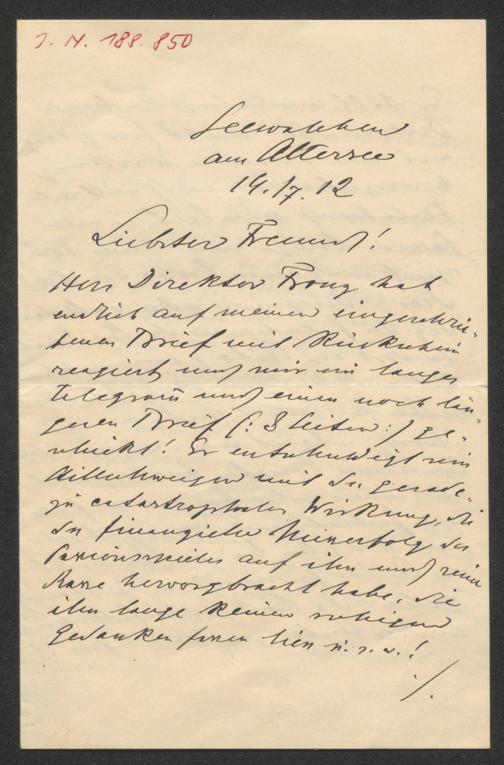 J. N. 188.850
Seewalchen
am Attersee
14./7. 12
Liebster Freund!
Herr Direktor Frony hat
endlich auf meinen eingeschrie-
benen Brief mit Rückschein
reagiert und mir ein langes
Telegram und einen noch län-
geren Brief (: 8 Seiten :) ge-
schickt! Er entschuldigt sein
Stillschweigen mit der gerade-
zu catastrophalen Wirkung, die
der finanzielle Misserfolg des
Passionsspieles auf ihn und seine
Kasse hervorgebracht habe, die
ihn lange keinen ruhigen
Gedanken fassen liess u. s. w.!
./.